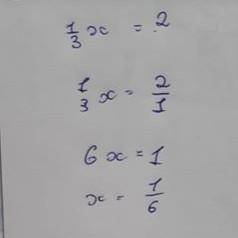 1/3 x = 2
1/3 x = 2/1
6x = 1
x = 1/6